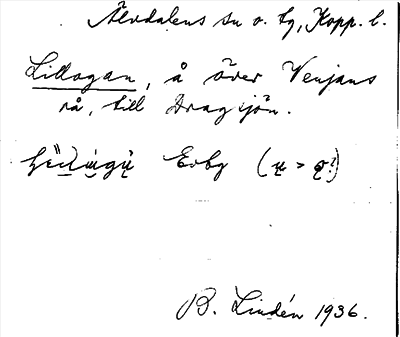 Älvdalens sn o. tg, Kopp. l.
Lillågan, å över Venjans
rå, till Dragsjön.
Evbg (u > o?)
B. Lindén 1936.